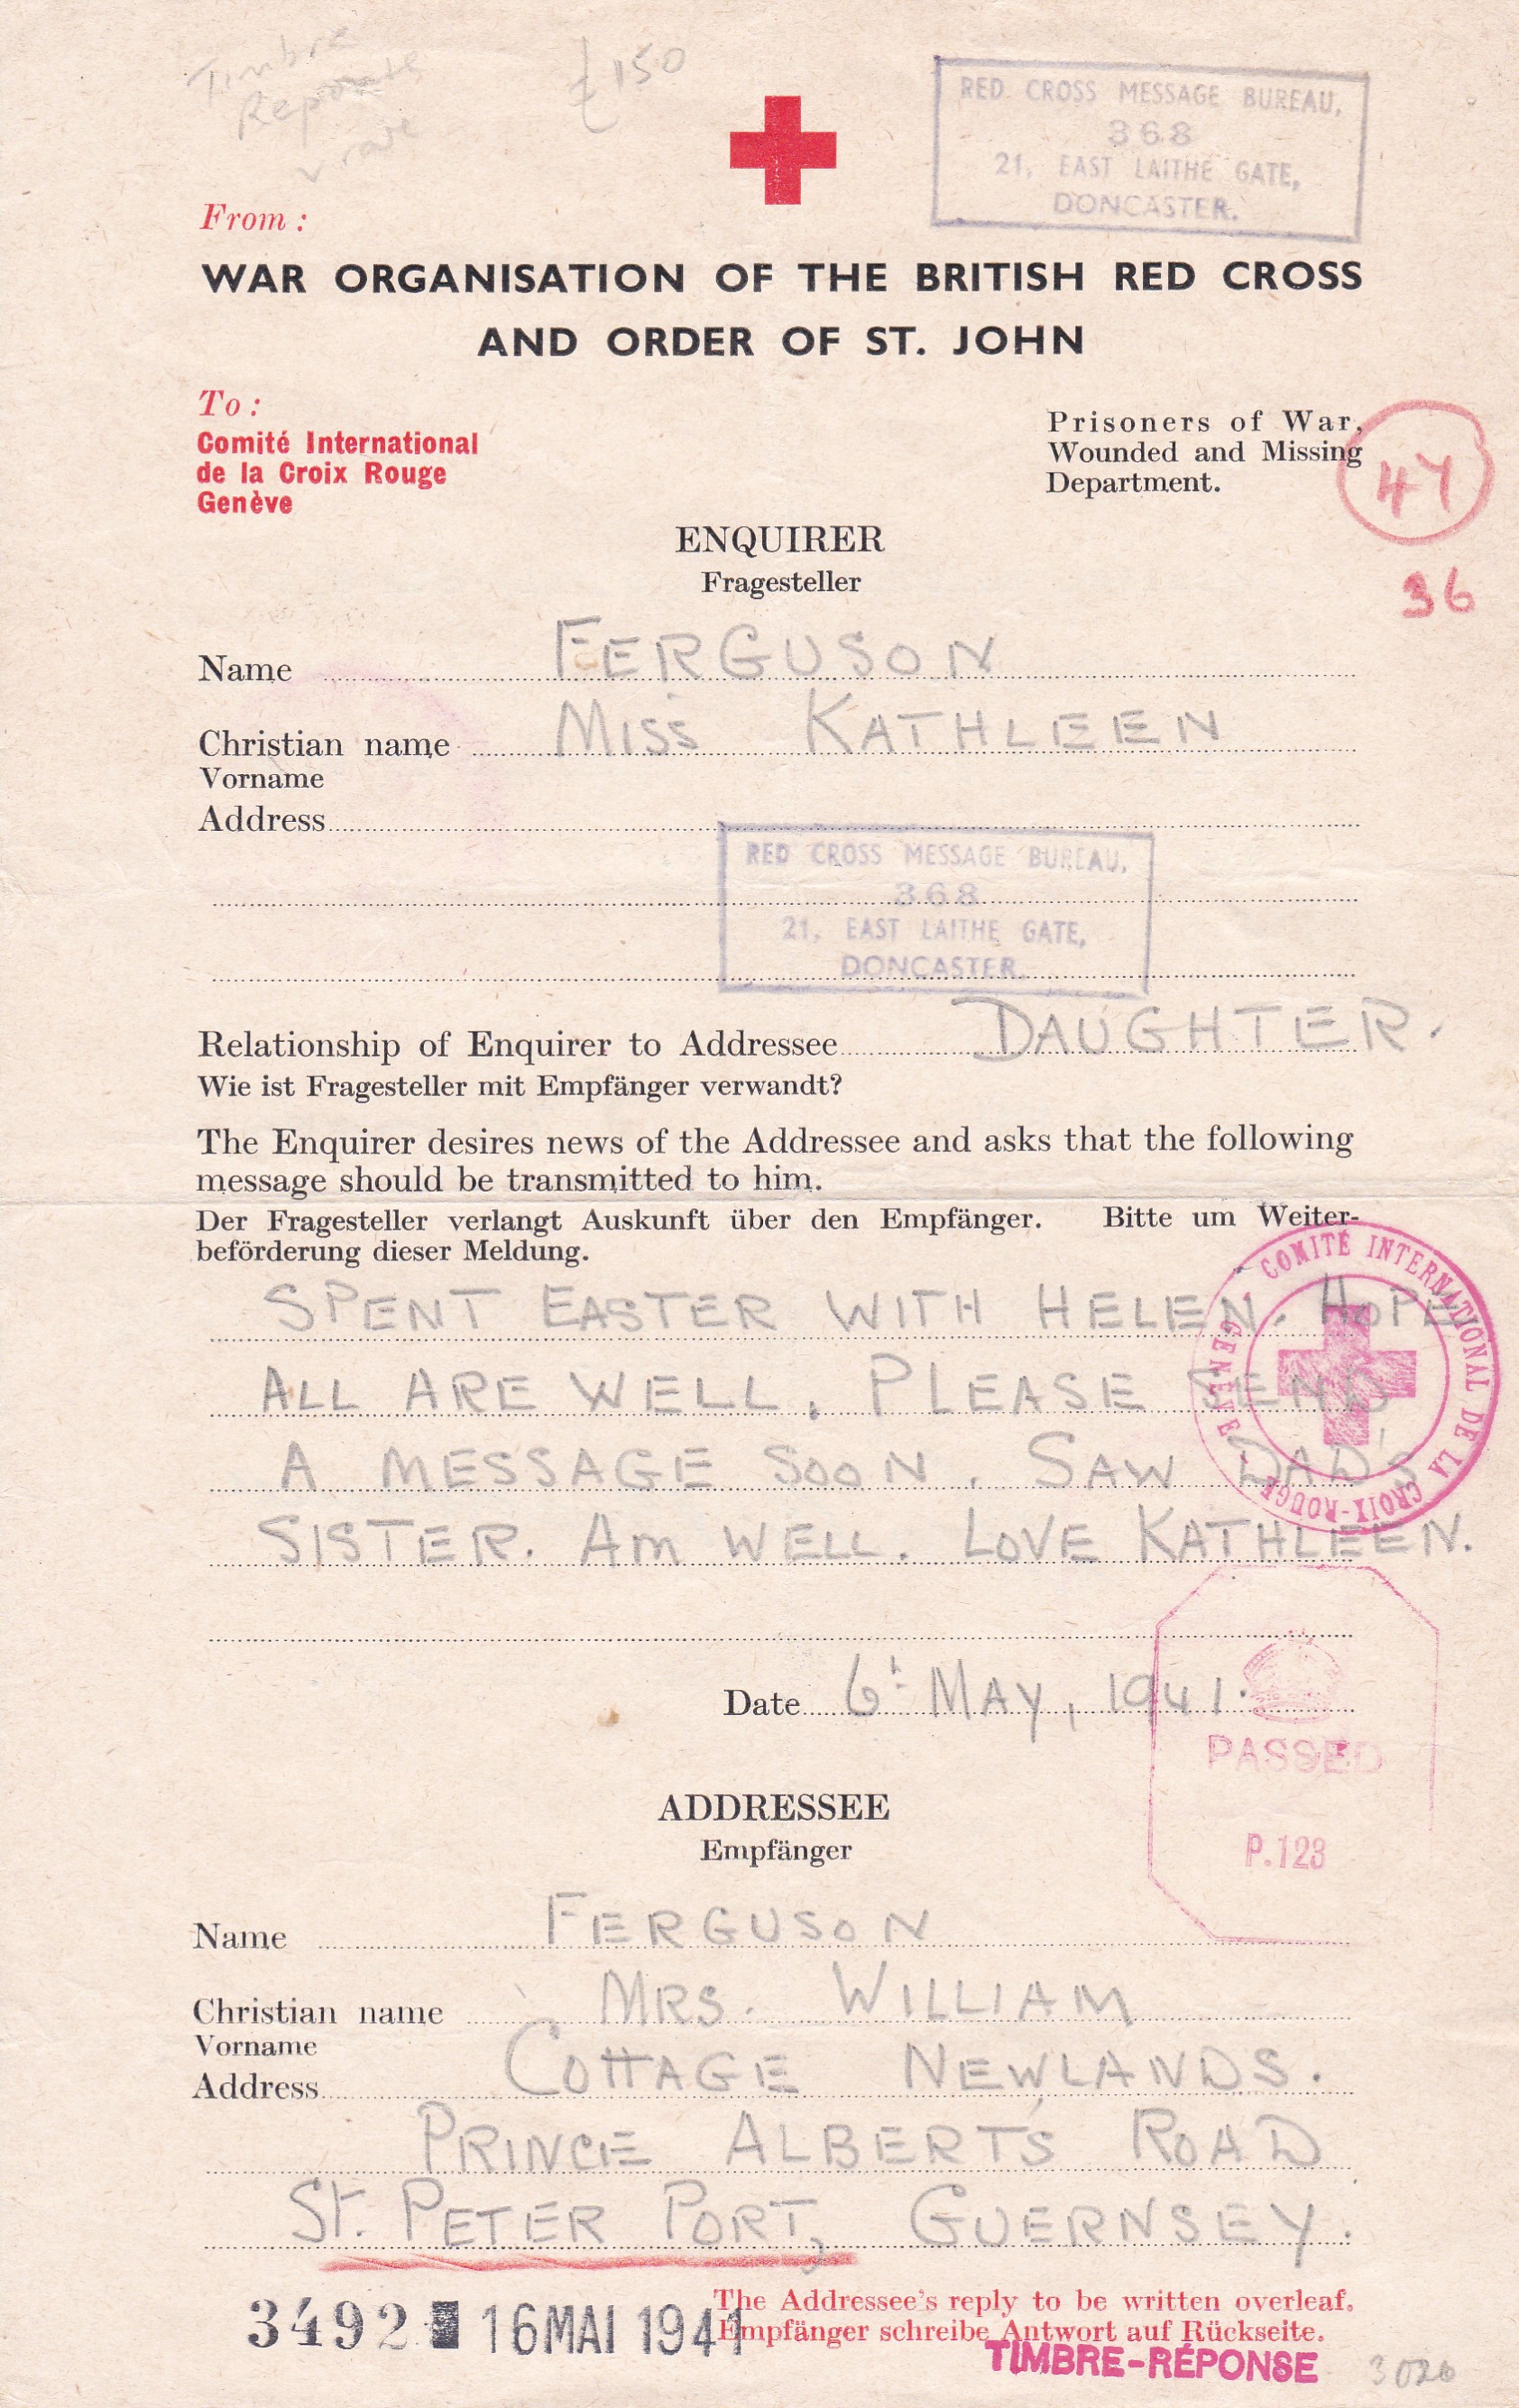 Timbre
£150
rare
RED CROSS MESSAGE BUREAU,
368
21, EAST LAITHE GATE,
DONCASTER.
From :
WAR ORGANISATION OF THE BRITISH RED CROSS
AND ORDER OF ST. JOHN
To :
Comité International
de la Croix Rouge
Genève
Prisoners of War,
Wounded and Missing
Department.
47
36
ENQUIRER
Fragesteller
Name FERGUSON
Christian name MISS KATHLEEN
Vorname
Address
RED CROSS MESSAGE BUREAU,
368
21, EAST LAITHE GATE,
DONCASTER.
Relationship of Enquirer to Addressee DAUGHTER.
Wie ist Fragesteller mit Empfänger verwandt?
The Enquirer desires news of the Addressee and asks that the following
message should be transmitted to him.
Der Fragesteller verlangt Auskunft über den Empfänger. Bitte um Weiter-
beförderung dieser Meldung.
SPENT EASTER WITH HELEN. HOPE
ALL ARE WELL. PLEASE SEND
A MESSAGE SOON. SAW DAD'S
SISTER. AM WELL. LOVE KATHLEEN.
COMITÉ INTERNATIONAL DE LA CROIX-ROUGE - GENÈVE -
Date 6t MAY, 1941.
PASSED
P.123
ADDRESSEE
Empfänger
Name FERGUSON
Christian name MRS. WILLIAM
Vorname
Address COTTAGE NEWLANDS.
PRINCE ALBERT'S ROAD
ST. PETER PORT, GUERNSEY.
The Addressee's reply to be written overleaf.
Empfänger schreibe Antwort auf Rückseite.
3492 16 MAI 1941
TIMBRE-RÉPONSE
3020